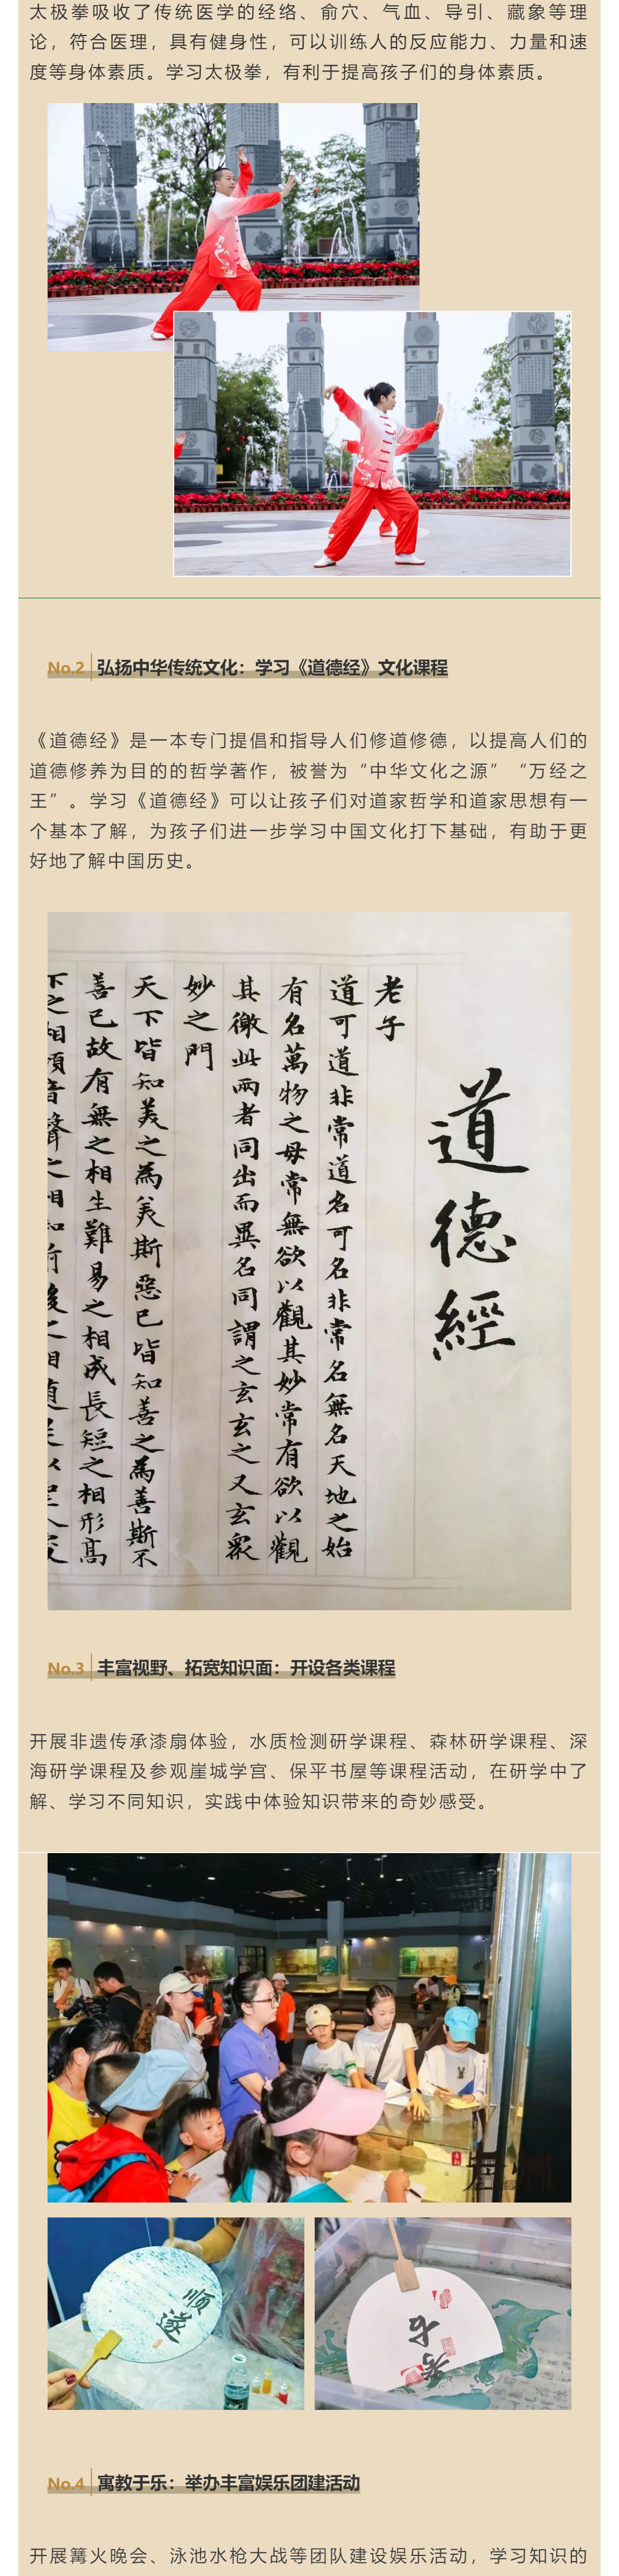 太极拳吸收了传统医学的经络、俞穴、气血、导引、藏象等理
论，符合医理，具有健身性，可以训练人的反应能力、力量和速
度等身体素质。学习太极拳，有利于提高孩子们的身体素质。
No.2 弘扬中华传统文化：学习《道德经》文化课程
《道德经》是一本专门提倡和指导人们修道修德，以提高人们的
道德修养为目的的哲学著作，被誉为“中华文化之源”“万经之
王”。学习《道德经》可以让孩子们对道家哲学和道家思想有一
个基本了解，为孩子们进一步学习中国文化打下基础，有助于更
好地了解中国历史。
道德經
老子
道可道非常道名可名非常名無名天地之始
有名萬物之母常無欲以觀其妙常有欲以觀
其徼此兩者同出而異名同謂之玄玄之又玄衆
妙之門
天下皆知美之為美斯惡已皆知善之為善斯不
善已故有無之相生難易之相成長短之相形高
下之相傾音聲之相和前後之相隨是以聖人處
No.3 丰富视野、拓宽知识面：开设各类课程
开展非遗传承漆扇体验，水质检测研学课程、森林研学课程、深
海研学课程及参观崖城学宫、保平书屋等课程活动，在研学中了
解、学习不同知识，实践中体验知识带来的奇妙感受。
顺遂
No.4 寓教于乐：举办丰富娱乐团建活动
开展篝火晚会、泳池水枪大战等团队建设娱乐活动，学习知识的